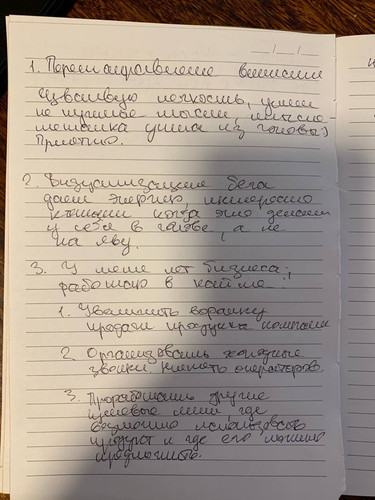 1. Перенаправление внимания
Чувствую легкость, ушли
не нужные мысли, мысле-
мешалка ушла из головы)
Приятно.
2. Визуализация бега
дает энергию, интересно
когда это делаем
у себя в голове, а не
на яву.
3. У меня нет бизнеса;
работаю в найме:
1. Увеличить воронку
продаж продукта компании
2 Организовать холодные
звонки. операторов.
3. Проработать другие
целевые ниши, где
возможно использовать
продукт и где его можно
предложить.